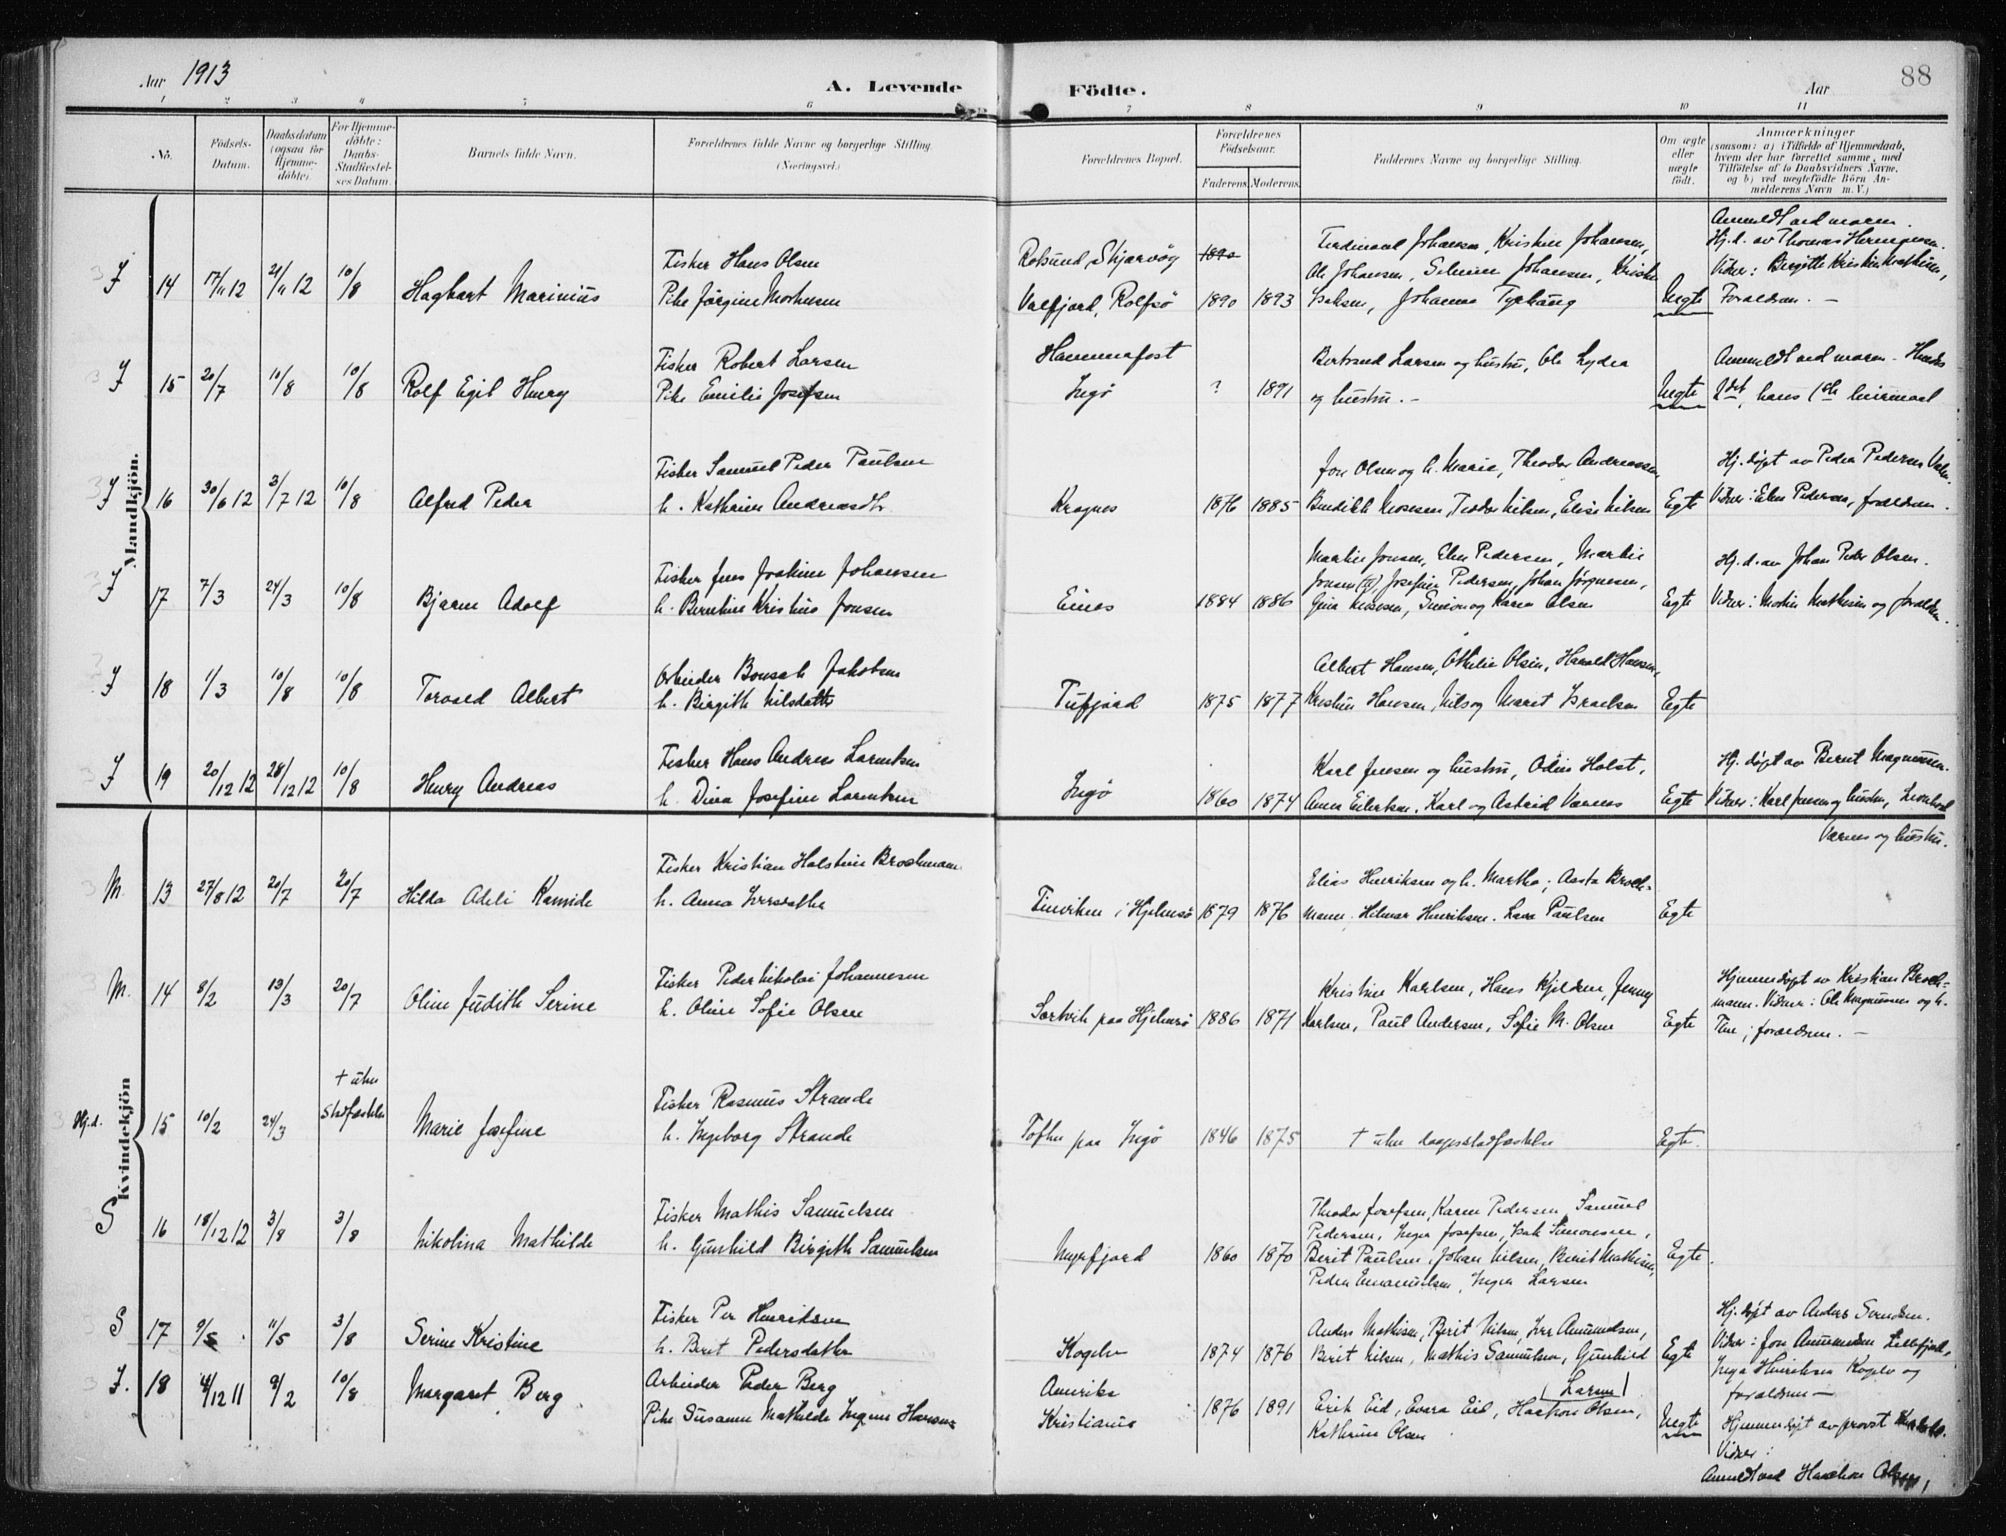 Aar 1913
A. Levende Födte.
Aar
88
1 2 3 4 5 6 7 8 9 10 11
No.
Födsels-
Datum.
Daabsdatum
(ogsaa for
Hjemme-
döbte).
For Hjemme-
döbte:
Daabs-
Stadfæstel-
ses Datum.
Barnets fulde Navn.
Forældrenes fulde Navne og borgerlige Stilling.
(Næringsvei.)
Forældrenes Bopæl.
Forældrenes
Födselsaar.
Faderens. Moderens.
Faddernes Navne og borgerlige Stilling.
Om ægte
eller
uægte
födt.
Anmærkninger
(saasom: a) i Tilfælde af Hjemmedaab,
hvem der har forrettet samme, med
Tilföielse af to Daabsvidners Navne.
og b) ved uægtefödte Börn An-
melderens Navn m. V.)
Mandkjön.
I 14 17/11 12 21/11 12 10/8 Hagbart Marinius
Fisker Hans Olsen
Pike Jörgine
Skjærvøy 1890
Rolfsø 1890 1893
Ferdinand Johansen, Kristine Johansen,
Ole Johansen, Johansen,
Isaksen, Johannes
Uegte
Anmeldt ved moren.
Hj.d. av Thomas
Vidner: Birgitte Kristine Mathisen,
Forældrene. —
I 15 20/7 10/8 10/8 Rolf Egil Henry
Fisker Robert Larsen
Pike Emilie Josefsen
Hammerfest
Ingø
? 1891
Bertrand Larsen og hustru, Ole Lydra
og hustru. —
Uegte
Anmeldt ved moren - Hendes
2det, hans 1ste leiermaal
I 16 30/6 12 3/7 12 10/8 Alfred Peder
Fisker Samuel Peder Paulsen
h. Kathrine Andreasdtr
Kragnes
1876 1885
Jon Olsen og h. Marie, Theodor Andreassen,
Bendikt Mosesen, Teodor Nilsen, Elise Nilsen
Egte
Hj. døpt av Peder Pedersen
Vidner: Elen Pedersen, forældrene.
I 17 7/3 24/3 10/8 Bjarne Adolf
Fisker Jens Joakim Johansen
h. Berntine Kristine Jonsen
Eines
1884 1886
Martin Jonsen, Elen Pedersen, Martin
Jonsen Josefine Pedersen, Johan Jörgensen,
Gina Mosesen, Simon og Karen Olsen
Egte
Hj.d. av Johan Peder Olsen.
Vidner: Mathisen og forældrene.
I 18 1/3 10/8 10/8 Torvald Albert
Arbeider Jakobsen
h. Birgith Nilsdatter
Tufjord
1875 1877
Albert Hansen, Othilie Olsen, Harald Hansen,
Kristine Hansen, Nils og Marit Israelsen
Egte
I 19 20/12 12 28/12 12 10/8 Henry Andreas
Fisker Hans Andreas Larentsen
h. Dina Josefine Larentsen
Ingø
1860 1874
Karl Jensen og hustru, Odin Holst,
Anna Eilertsen, Karl og Astrid Værnes
Egte
Hj. døpt av Bernt Magnussen.
Vidner: Karl Jensen og hustru,
Værnes og hustru.
Kvindekjön
M. 13 27/8 12 20/7 20/7 Hilda Adele
Fisker Kristian Holstein Brochmann
h. Anna
Finviken i Hjelmsø
1879 1876
Elias Henriksen og h. Martha; Aasta Broch-
mann, Hilmar Henriksen. Paulsen
Egte
M. 14 8/2 13/3 20/7 Oline Judith Serine
Fisker Peder Nikolai Johannesen
h. Oline Sofie Olsen
Sortvik paa Hjelmsø
1886 1871
Kristine Karlsen, Hans Kjeldsen, Jenny
Karlsen, Paul Andersen, Sofie M. Olsen
Egte
Hjemmedøpt av Kristian Broch-
mann. Vidner: Ole Magnussen og h.
forældrene. —
Hj.d. 15 10/2 24/3 + uten
Stadfæstelse
Marie Josefine
Fisker Rasmus Strande
h. Ingeborg Strande
Toften paa Ingø
1846 1875
+ uten daapsstadfæstelse
Egte.
S 16 18/12 12 3/8 3/8 Nikolina Mathilde
Fisker Mathis Samuelsen
h. Gunhild Birgith Samuelsen
Myrfjord
1860 1870
Theodor Josefsen, Karen Pedersen, Samuel
Pedersen, Inger Josefsen, Isak Simonsen,
Berit Paulsen, Johan Nilsen, Berit Mathisen,
Peder Emanuelsen, Inger Larsen
Egte
S 17 9/5 11/5 3/8 Serine Kristine
Fisker Per Henriksen
h. Berit Pedersdatter
Kogelv
1874 1876
Anders Mathisen, Berit Nilsen, Iver Amundsen,
Berit Nilsen, Mathis Samuelsen, Gunhild
(Larsen)
Egte
Hj. døpt av Anders Svendsen.
Vidner: Jon Amundsen Lillefjord,
Inga Henriksen Kogelv og
forældrene —
I. 18 4/12 11 9/2 10/8 Margaret Berg
Arbeider Peder Berg
Pike Susanne Mathilde Ingine Hansen
Amerika
Kristiania
1876 1891
Erik Eid, Evera Eid, Haakon Olsen,
Kathrine Olsen
Uegte
Hjemmedøpt av provst
Vidner:
Anmeldt ved Haakon Olsen,